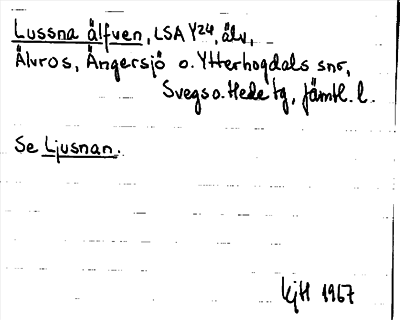 Lussna älfven, LSA Y24, älv,
Älvros, Ängersjö o. Ytterhogdals snr,
Svegs o. Hede tg, Jämtl. l.
Se Ljusnan.
KjH 1967